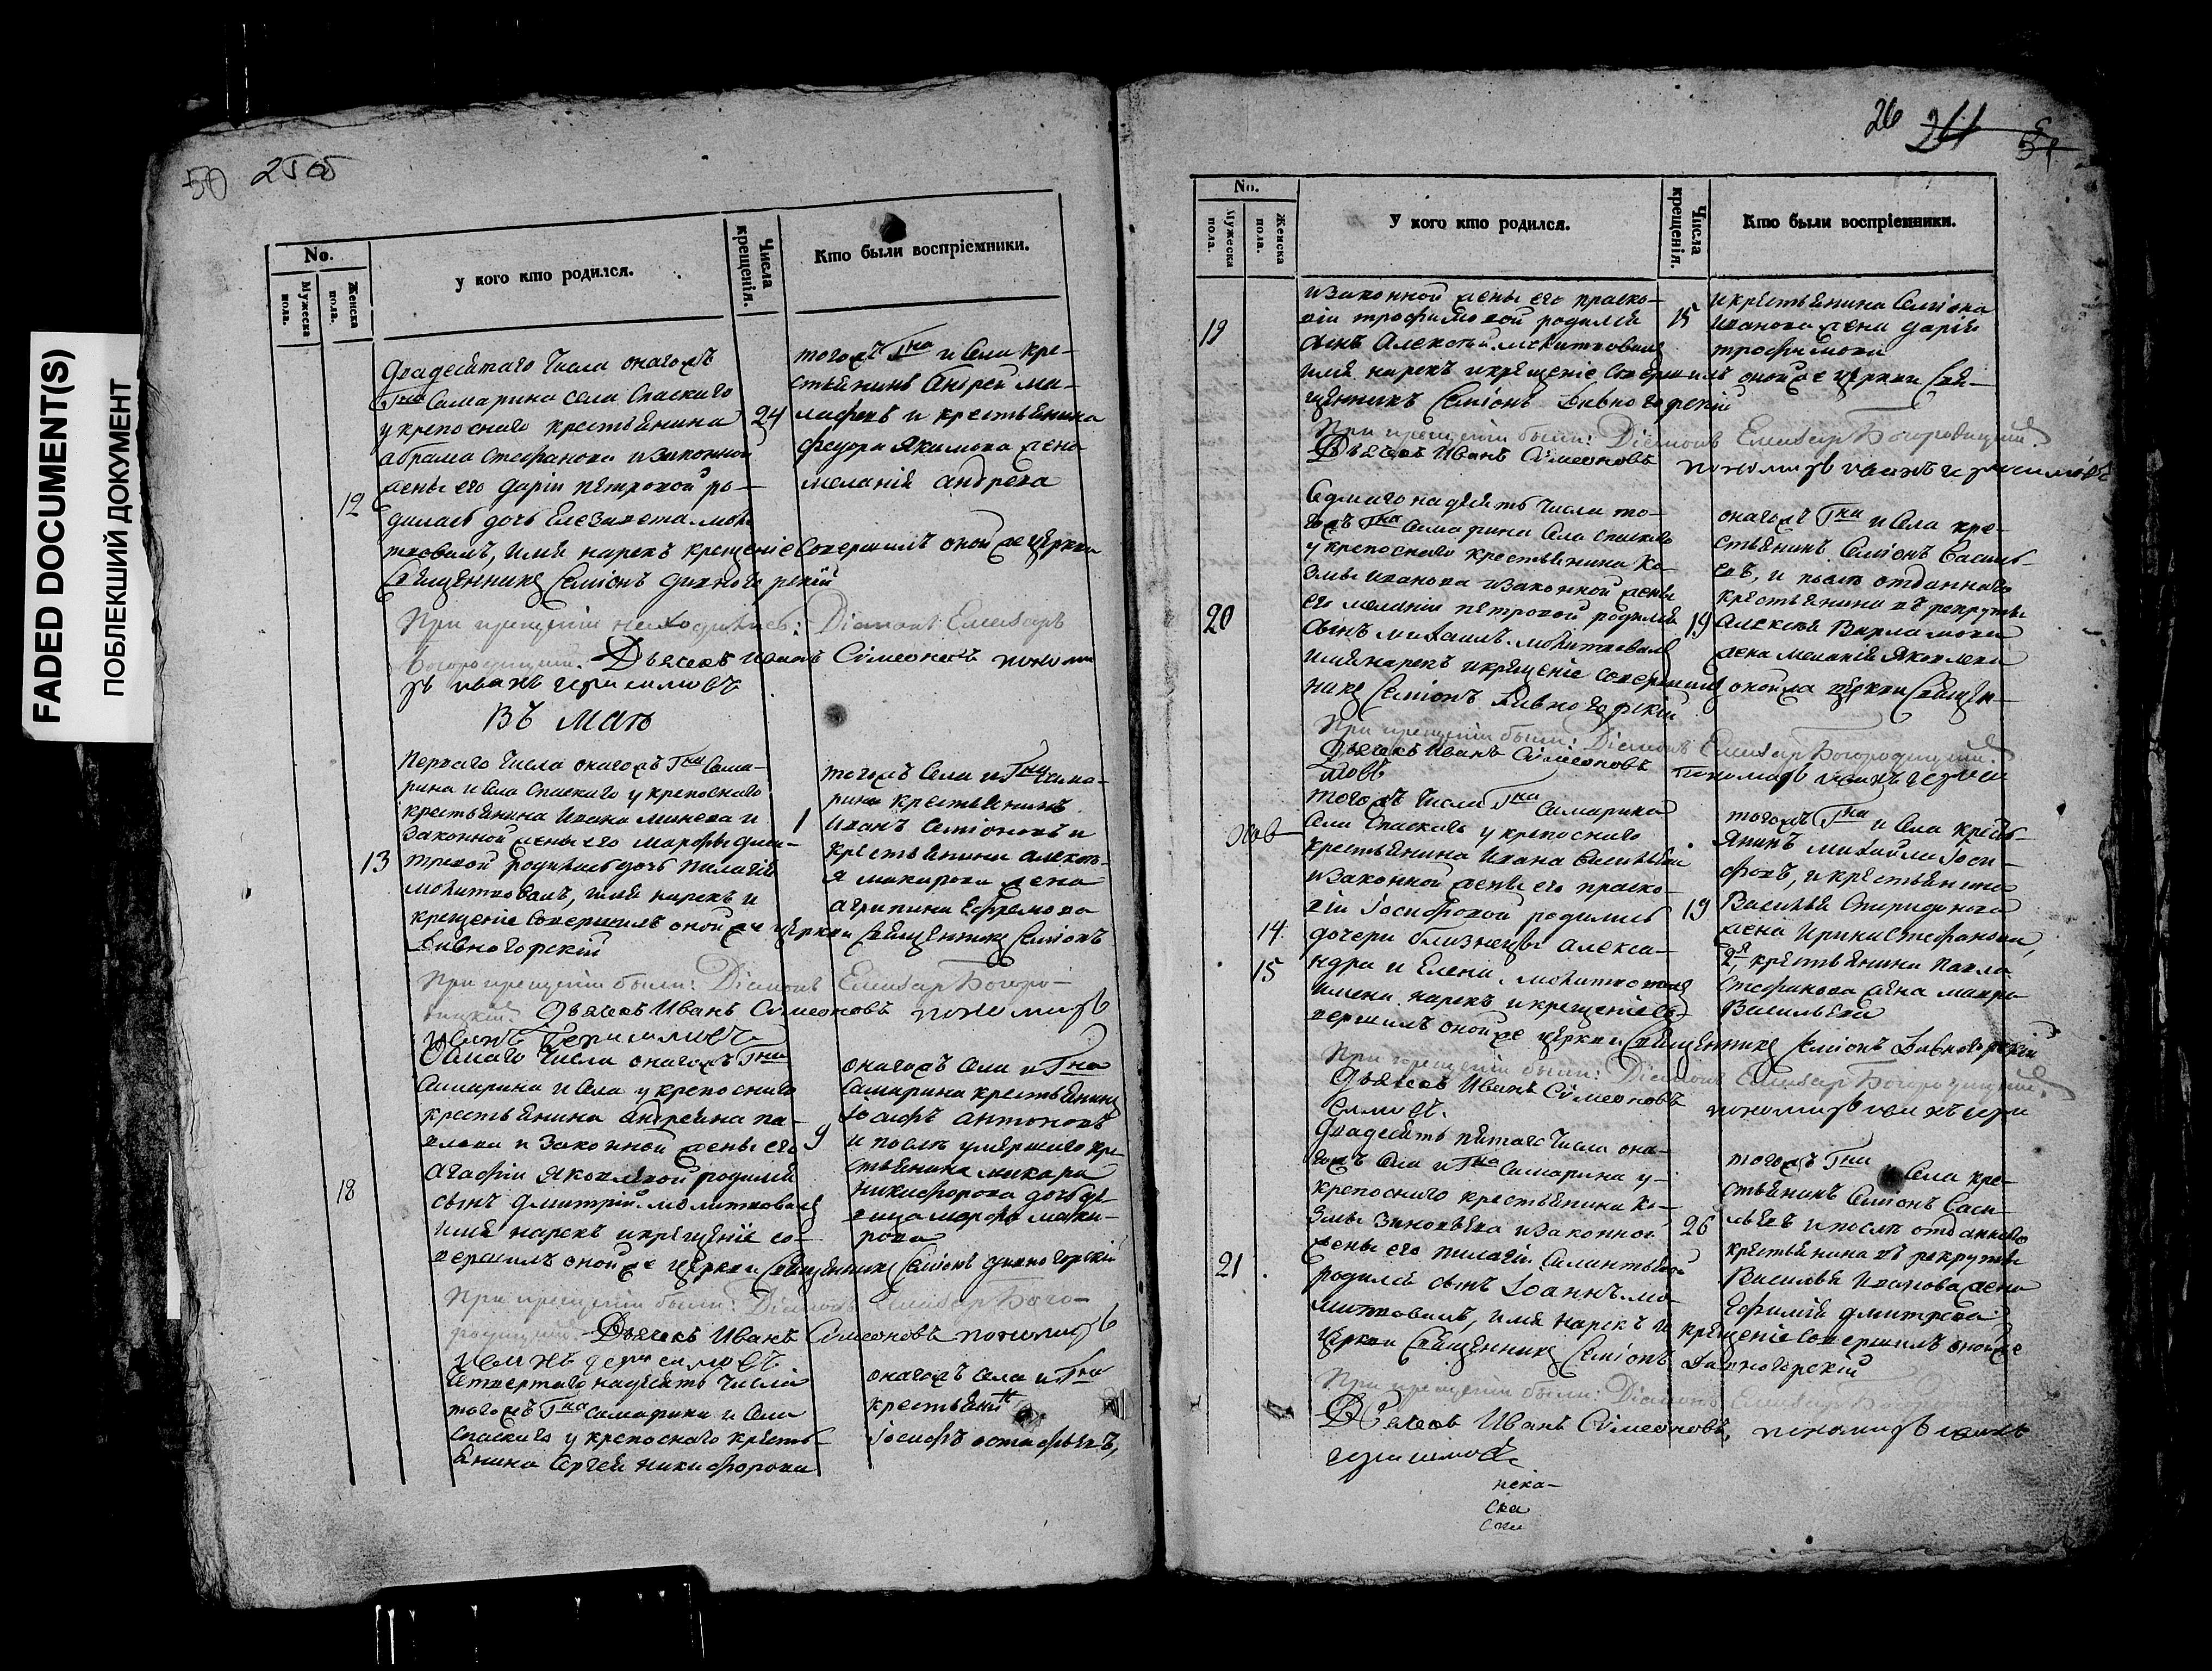 FADED DOCUMENT(S)
ПОБЛЕКШИЙ ДОКУМЕНТ
50
No.
Мужеска пола.
Женска пола.
У кого кто родился.
Числа крещенія.
Кто были воспріемники.
двадесятаго числа онагожъ
Гна Самарина села Спаскаго
у крепоснаго крестьянина
абрама Стефанова изаконной
жены его дарiи петровой ро-
12
дилась дочь Елезавета. моли
твовалъ, имя нарекъ крещенiе совершилъ оной же церкви
Священникъ Семiонъ дивногорскiй
24
тогожъ Гна и Села кре-
стьянинъ Андрей ма-
и крестьянина
федора Якимова жена
меланiя андрева
При крещенiи находились: Дiаконъ Елеазаръ
Богородицкiй. Дьячекъ Иванъ Сѵмеоновъ поном
рь иванъ герасимовъ
Въ маiе
перваго числа онагожъ Гна Сама-
рина и Села Спаскаго у крепоснаго
крестьянина Ивана минева и
законной жены его марфы дми-
13
тревой родилась дочь пилагiя
молитвовалъ, имя нарекъ и
крещенiе совершилъ оной же церкви Священникъ Семiонъ
Дивногорскiй
1
тогожъ Села и Гна Сама-
рина крестьянинъ
Иванъ Семiоновъ и
крестьянина алексѣ-
я макарова жена
агрипина Ефремова
При крещенiи были: Дiаконъ Елеазар Богоро-
дицкiй. Дьячекъ Иванъ Сѵмеоновъ пономарь
иванъ герасимовъ
осмаго числа онагожъ Гна
Самарина и Села у крепоснаго
крестьянина андреяна па-
влова и законной жены его
агафiи Яковлевой родился
18
сынъ дмитрiй. молитвовалъ
имя нарекъ икрещенiе со-
вершилъ оной же церкви Священникъ Семiонъ дивногорскiй
9
онагожъ Села и Гна
Самарина крестьянинъ
Iосифъ антоновъ
и послѣ умершаго кре
стьянина макара
никифорова дочь де-
вица марфа мака-
рова
При крещенiи были: Дiаконъ Елеазар Бого-
родицкiй. Дьячекъ Иванъ Сѵмеоновъ пономарь
иванъ герасимовъ
Четвертаго надесять числа
тогожъ Гна Самарина и Села
Спаскаго у крепоснаго кресть-
янина Сергея никифорова
онагожъ Села и Гна
крестьянинъ
Iосифъ остафьевъ,
26
No.
Мужеска пола.
Женска пола.
У кого кто родился.
Числа крещенія.
Кто были воспріемники.
изаконной жены его праско-
вiи трофимовой родился
19
сынъ Алексѣй. молитвовалъ
имя нарекъ икрещенiе совершилъ оной же церкви Свя-
щенникъ Семiонъ Дивногорскiй
15
икрестьянина Семiона
Иванова жена дарiя
трофимова
При крещенiи были: Дiаконъ Елеазар Богородицкiй.
Дьячекъ Иванъ Сѵмеоновъ пономарь иванъ герасимовъ
Седмаго надесять числа то-
гожъ Гна Самарина Села Спаскаго
у крепоснаго крестьянина Ко-
змы Иванова изаконной жены
его меланiи петровой родился
20
сынъ михаилъ. молитвовалъ
имя нарекъ икрещенiе совершилъ церкви Священ-
никъ Семiонъ Дивногорскiй
19
онагожъ Гна и Села кре-
стьянинъ Семiонъ Василь-
евъ, и послѣ отданнаго
крестьянина въ рекруты
Алексея Варламова
жена меланiя Яковлева
При крещенiи были: Дiаконъ Елеазар Богородицкiй.
Дьячекъ Иванъ Сѵмеоновъ пономарь иванъ гераси
мовъ
тогожъ числа Гна Самарина
Села Спаскаго у крепоснаго
крестьянина Ивана Васильева
изаконной жены его праско-
вiи Iосифовой родились
14
дочери близнецы алекса-
15
ндра и Елена. молитвовалъ
имена нарекъ икрещенiе со-
вершилъ оной же церкви Священникъ Семiонъ Дивногорскiй
19
тогожъ Гна и Села кресть-
янинъ михайла Iоси-
фовъ, и крестьянина
Василья Спиридонова
жена Ирина Стефанова,
2я, крестьянина Павла
Стефанова жена мавра
Васильева
При крещенiи были: Дiаконъ Елеазар Богородицкiй.
Дьячекъ Иванъ Сѵмеоновъ пономарь иванъ гера
симовъ.
двадесять пятаго числа она-
гожъ Села и Гна Самарина у-
крепоснаго крестьянина Ко-
змы Зиновьева изаконной
жены его пилагiи
21
родился сынъ Iоаннъ. мо-
литвовалъ, имя нарекъ и крещенiе совершилъ оной же
церкви Священникъ Семiонъ Дивногорскiй
26
тогожъ Гна и Села кре-
стьянинъ Семiонъ Васи-
льевъ и послѣ отданнаго
крестьянина въ рекруты
Василья Иванова жена
Ефимiя дмитрева
При крещенiи были: Дiаконъ Елеазар
Дьячекъ Иванъ Сѵмеоновъ, пономарь иванъ
герасимовъ